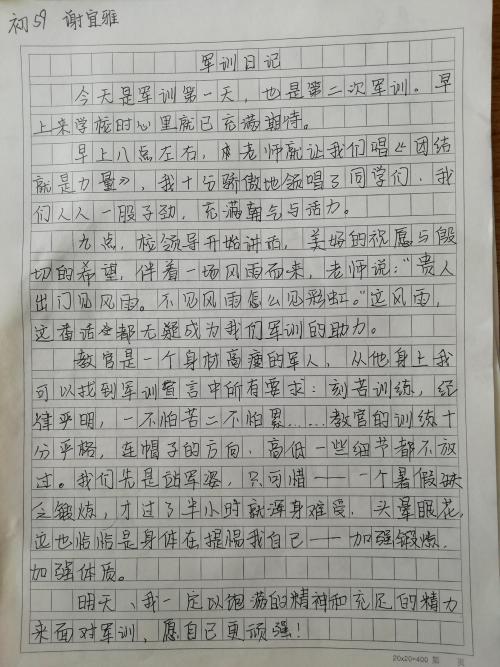 初59 谢宜雅
军训日记
今天是军训第一天，也是第二次军训。早
上来学校时心里就已充满期待。
早上八点左右，老师就让我们唱《团结
就是力量》，我十分骄傲地领唱了同学们，我
们人人一股子劲，充满朝气与活力。
九点，校领导开始讲话，美好的祝愿与殷
切的希望，伴着一场风雨而来，老师说："贵人
出门见风雨。不见风雨怎么见彩虹。"这风雨，
这番话都无疑成为我们军训的助力。
教官是一个身材高瘦的军人，从他身上我
可以找到军训宣言中所有要求：刻苦训练，纪
律严明，一不怕苦二不怕累……教官的训练十
分严格，连帽子的方向，高低一些细节都不放
过。我们先是站军姿，只可惜——一个暑假缺
乏锻炼，才过了半小时就浑身难受，头晕眼花，
这也恰恰是身体在提醒我自己——加强锻炼，
加强体质。
明天、我一定以饱满的精神和充足的精力
来面对军训，愿自己更顽强！
20×20=400 第 页